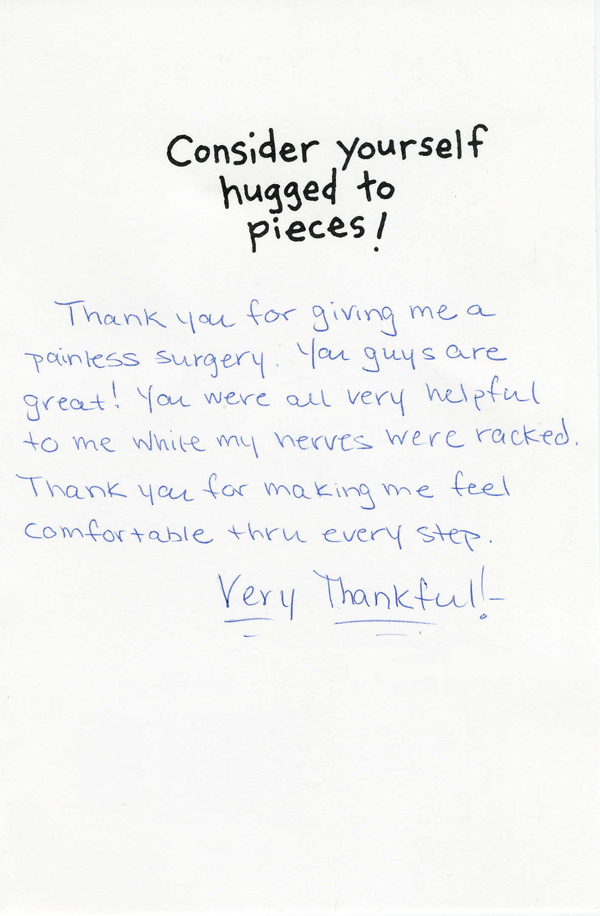 Consider yourself
hugged to
pieces!
Thank you for giving me a
painless surgery. You guys are
great! You were all very helpful
to me while my nerves were racked.
Thank you for making me feel
comfortable thru every step.
Very Thankful!-